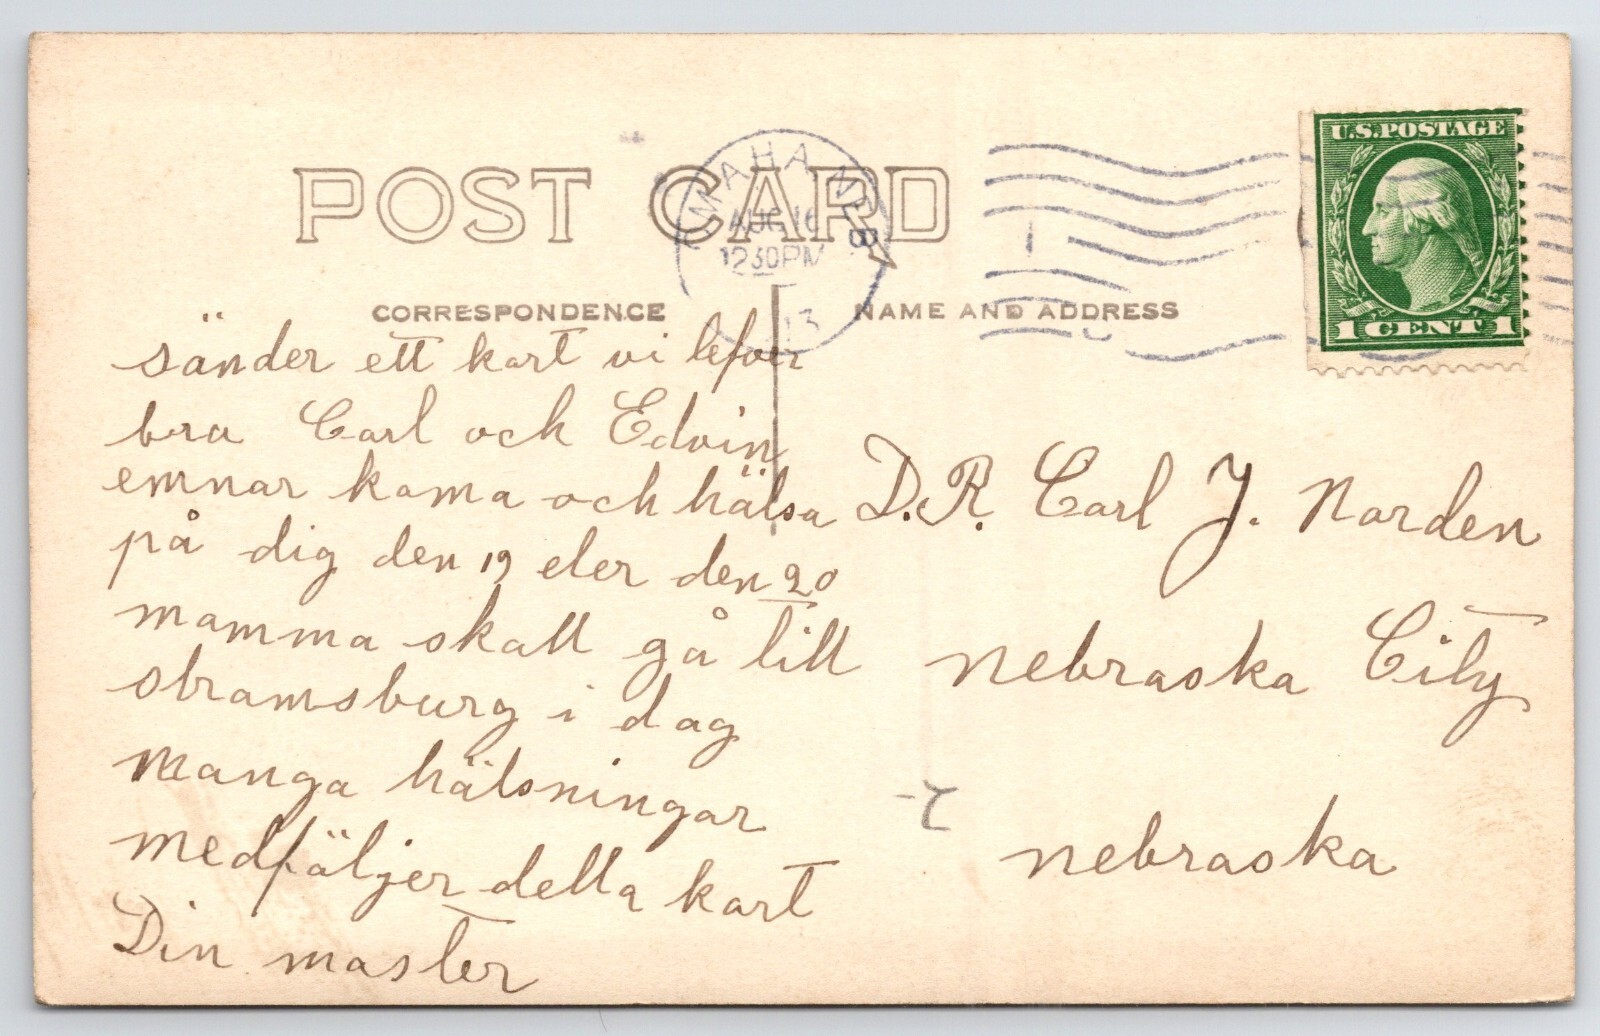 U.S. POSTAGE
POST CARD
OMAHA, NEB
AUG 16
1230PM
13
8
CORRESPONDENCE
NAME AND ADDRESS
1 CENT 1
sänder ett kart vi lefver
bra Carl och Edvin
emnar kama och hälsa
på dig den 19 eler den 20
mamma skall gå till
stramsburg i dag
manga hälsningar
medfäljer detta kart
Din master
D.R. Carl J. Norden
nebraska City
nebraska